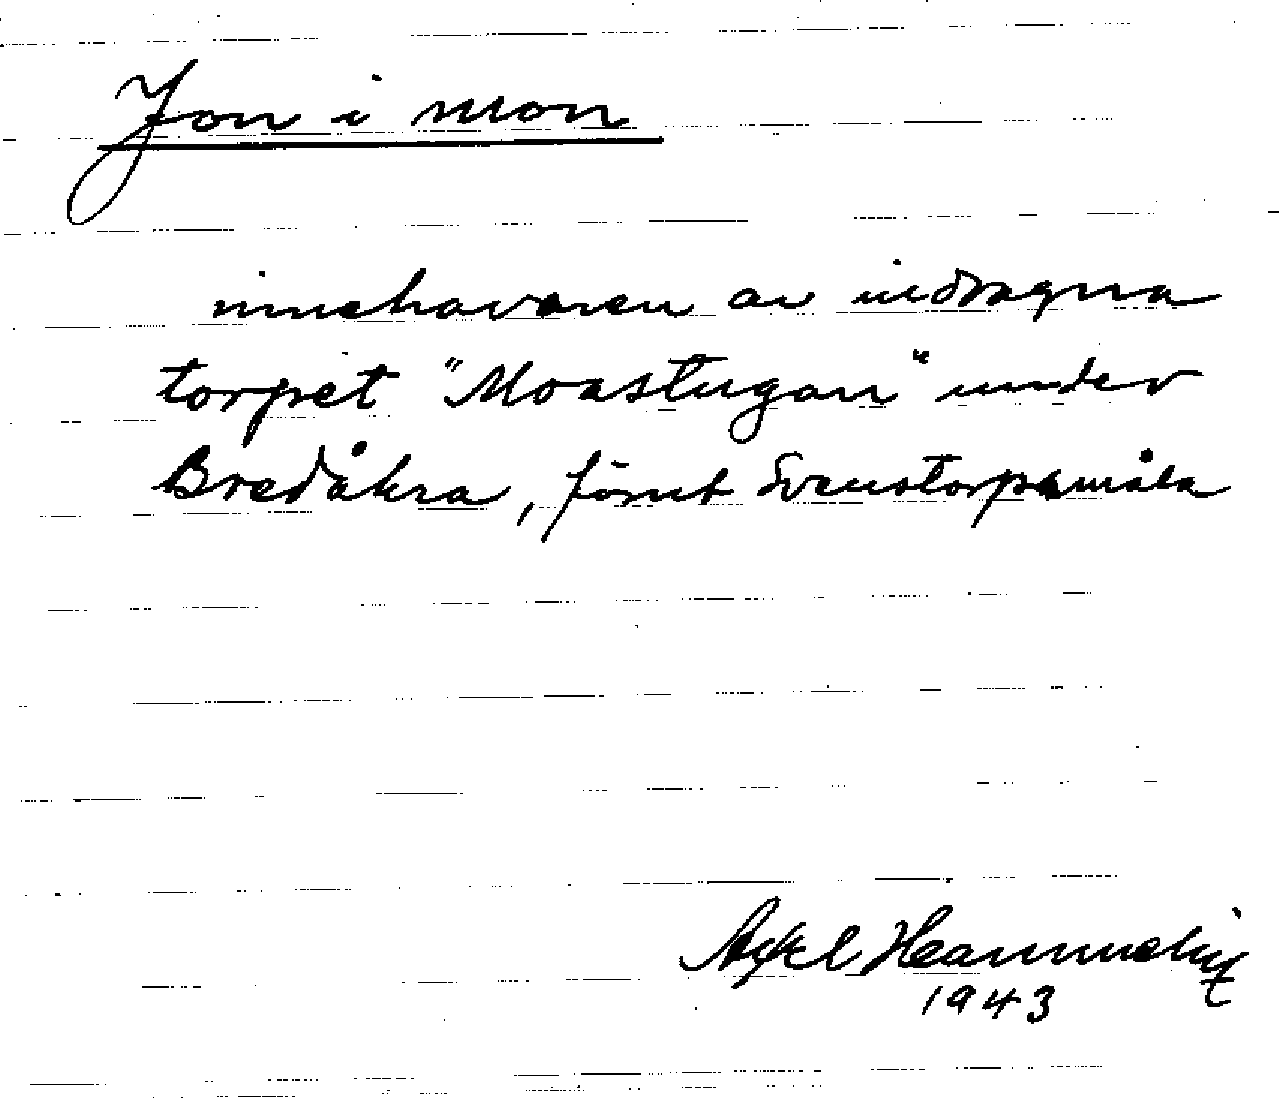 Jon i mon
innehavaren av indragna
torpet "Moastugan" under
Bredåkra, förut Svenstorpsmåla
Axel
1943